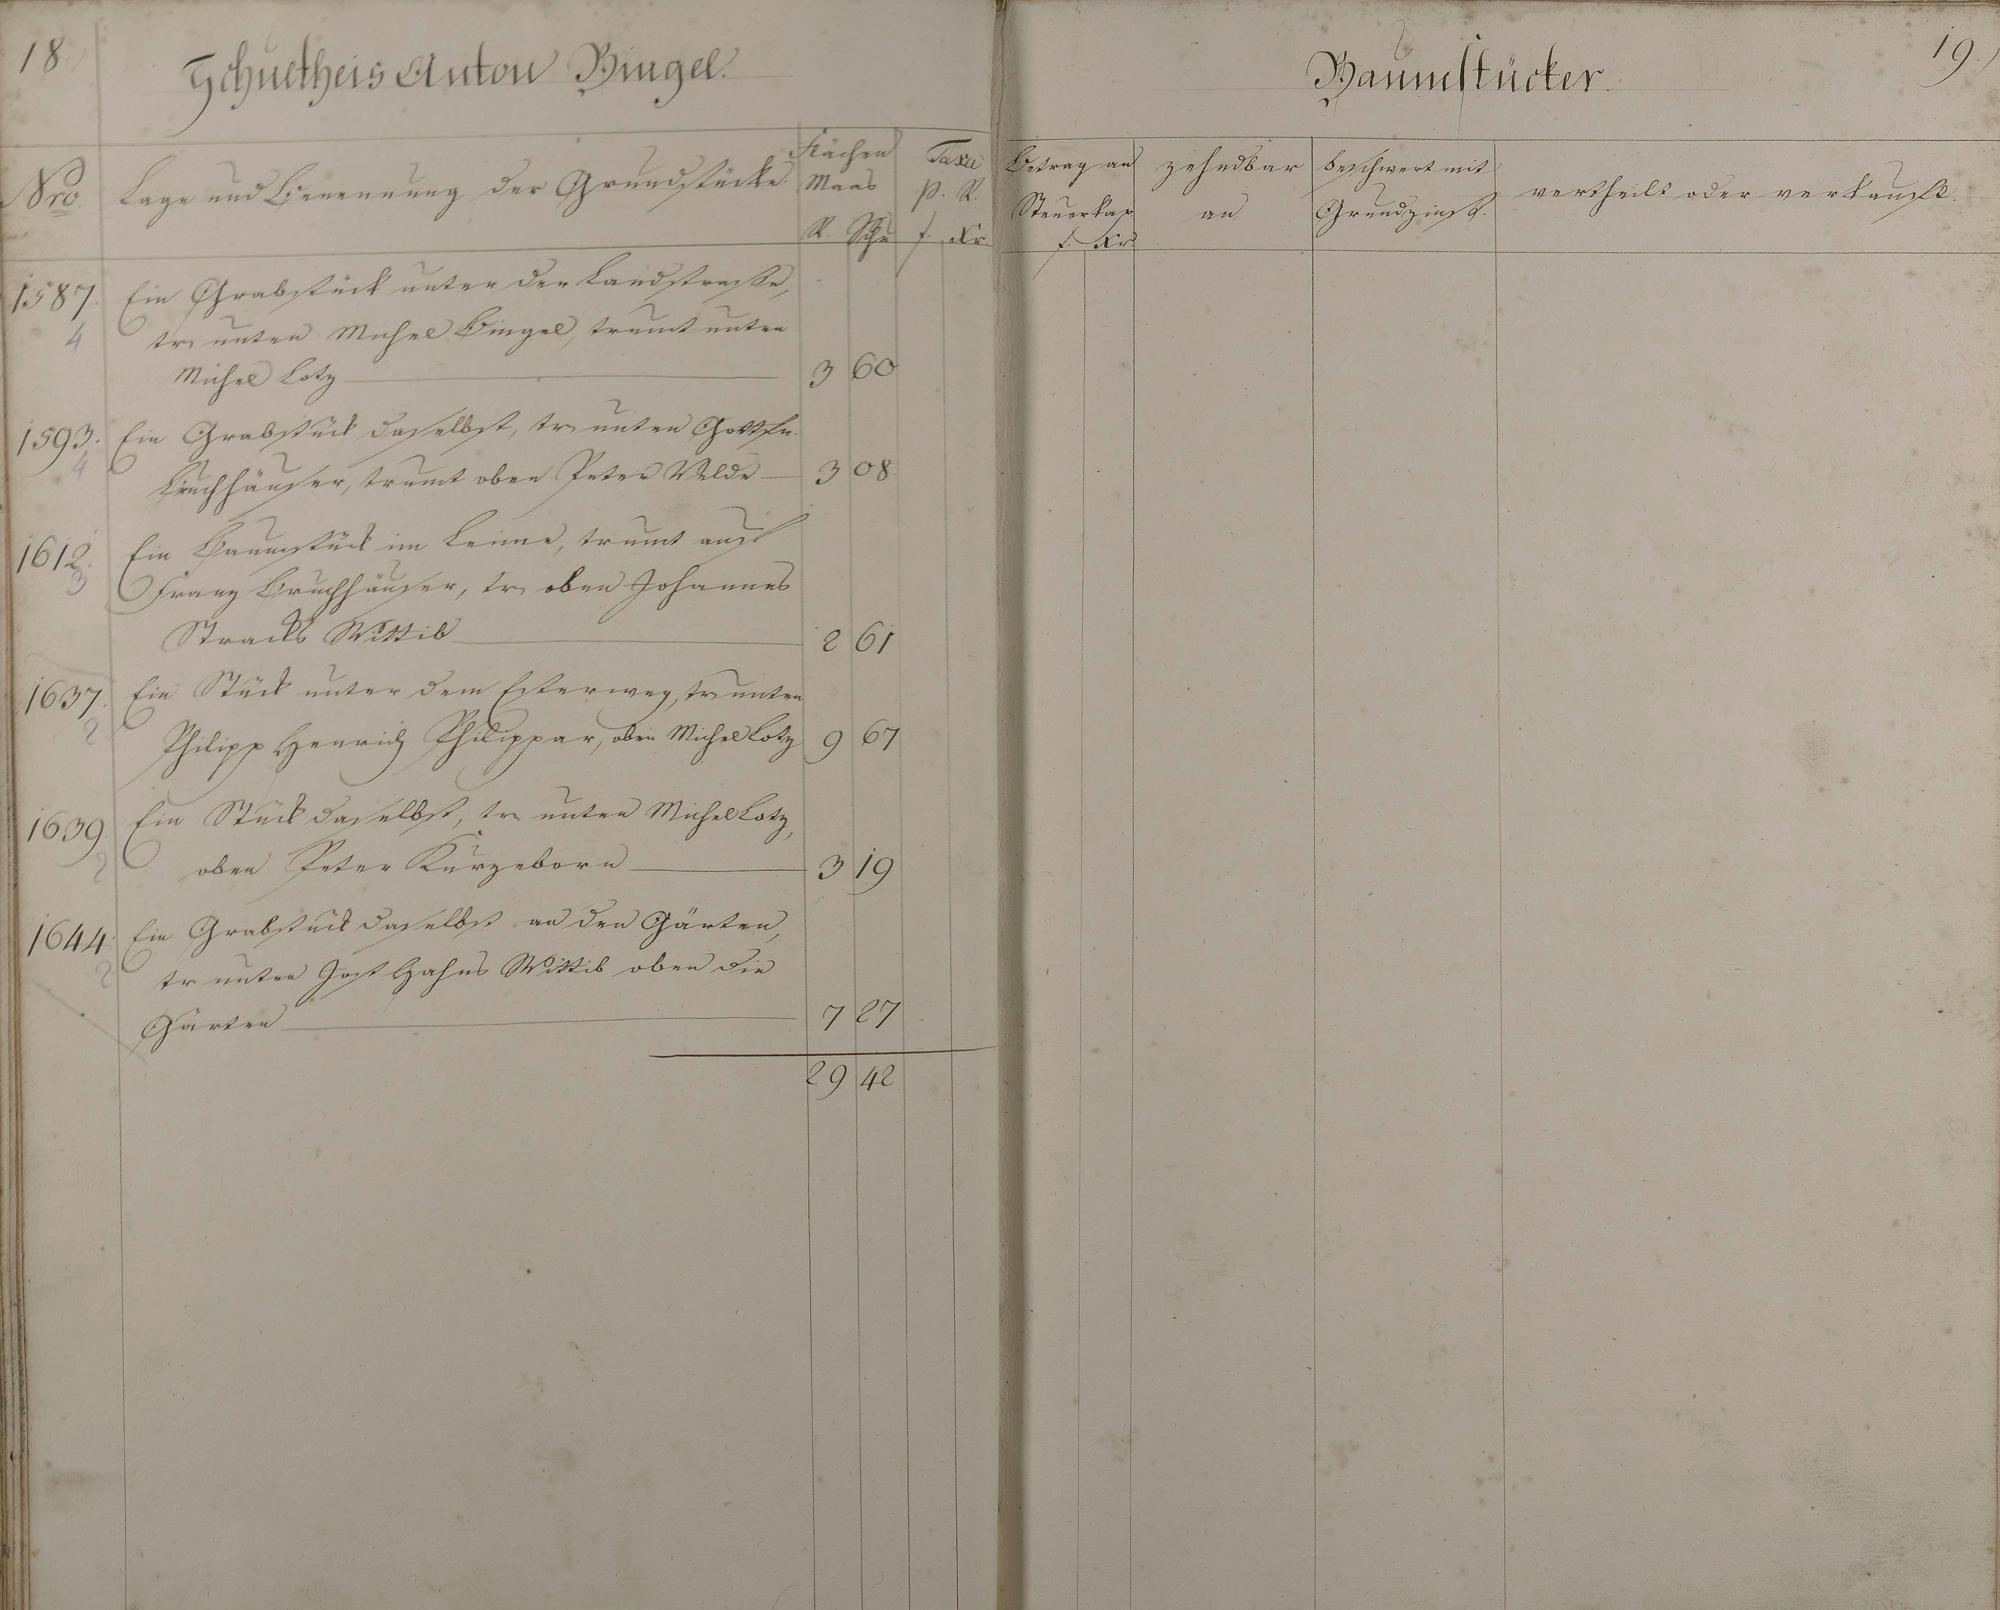 18.
Schultheis Anton Bingel.
Nro
Lage und Benennung der Grundstücke
Flächen
Maas
R. Schu
Taxa
p. R.
f. Xr.
1587.
4
Ein Grabstück unter der Landstraße,
tr. unten Michel Bingel, trumt unten
Michel Lotz 3 60
1593.
4
Ein Grabstück daselbst, tr. unten Gottfr.
Bruchhäuser, trumt oben Peter Velde 3 08
1612.
3
Ein Baumstück im Leime, trumt auf
Franz Bruchhäuser, tr. oben Johannes
Stracks Wittib 2 61
1637.
2
Ein Stück unter dem Esterweg, tr. unten
Philipp Henrich Philippar, oben Michel Lotz 9 67
1639.
2
Ein Stück daselbst, tr. unten Michel Lotz,
oben Peter Kurzeborn 3 19
1644.
2
Ein Grabstück daselbst an den Gärten,
tr. unten Jost Hahns Wittib oben die
Gärten 7 27
29 42
Baumstücker.
19.
Betrag an
Steuerkap
f. Xr
zehndbar
an
beschwert mit
Grundzinß.
vertheilt oder verkauft.